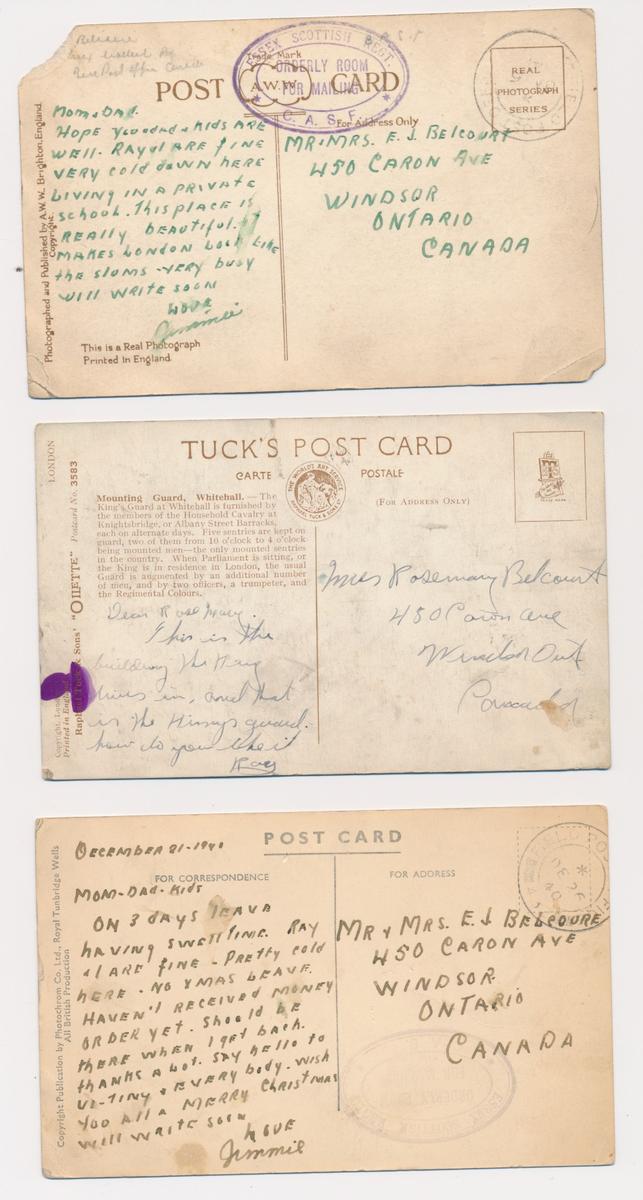 Believe
Trade Mark
POST A.W.W. CARD
ESSEX SCOTTISH REGT.
ORDERLY ROOM
FOR MAILING
C. A. S. F.
REAL
PHOTOGRAPH
SERIES
For Address Only
Photographed and Published by A.W.W. Brighton, England.
Copyright.
Mom & Dad.
HOPE YOU & KIDS ARE
WELL. RAY & I ARE FINE
VERY COLD DOWN HERE
LIVING IN A PRIVATE
SCHOOL. THIS PLACE IS
REALLY BEAUTIFUL. IT
MAKES LONDON LOOK LIKE
THE SLUMS - VERY BUSY
WILL WRITE SOON
LOVE
Jimmie
MR & MRS. E. J. BELCOURT
450 CARON AVE
WINDSOR
ONTARIO
CANADA
This is a Real Photograph
Printed in England.
TUCK'S POST CARD
CARTE POSTALE
THE WORLD'S ART SERVICE
RAPHAEL TUCK & SONS LTD
(FOR ADDRESS ONLY)
LONDON
Postcard No. 3583
"OILETTE"
Raphael Tuck & Sons'
Printed in England
Mounting Guard, Whitehall. — The
King's Guard at Whitehall is furnished by
the members of the Household Cavalry at
Knightsbridge, or Albany Street Barracks,
each on alternate days. Five sentries are kept on
guard, two of them from 10 o'clock to 4 o'clock
being mounted men—the only mounted sentries
in the country. When Parliament is sitting, or
the King is in residence in London, the usual
Guard is augmented by an additional number
of men, and by two officers, a trumpeter, and
the Regimental Colours.
Dear Rose Mary.
This is the
building the King
lives in, and that
is the Kings guard.
how do you like it
Ray
Miss Rosemary Belcourt
450 Caron ave
Windsor Ont
Canada
POST CARD
FOR CORRESPONDENCE
FOR ADDRESS
Copyright Publication by Photochrom Co. Ltd., Royal Tunbridge Wells
All British Production
DECEMBER 21-1940
MOM-DAD-KIDS
ON 3 DAYS LEAVE
HAVING SWELL TIME. RAY
& I ARE FINE - PRETTY COLD
HERE - NO XMAS LEAVE.
HAVEN'T RECEIVED MONEY
ORDER YET. SHOULD BE
THERE WHEN I GET BACK.
THANKS A LOT. SAY HELLO TO
VI-TINY & EVERY BODY. WISH
YOU ALL A MERRY CHRISTMAS
WILL WRITE SOON
LOVE
Jimmie
MR & MRS. E. J. BELCOURT
450 CARON AVE
WINDSOR
ONTARIO
CANADA
DE 26
40